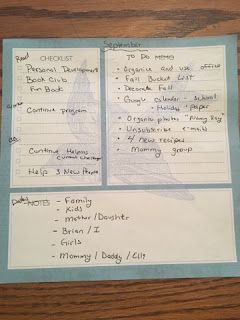 September
Read
CHECKLIST
Personal Development
Book Club
Fun Book
Continue program
Continue Helping
current challenge
Help 3 New People
TO DO MEMO
• Organize and use office
• Fall Bucket List
• Decorate Fall
• Google calendar - school
- Holiday - paper
• Organize photos
• Unsubscribe e-mails
• 4 new recipes
• Mommy group
Dates
NOTES
- Family
- Kids
- Mother / Daughter
- Brian / I
- Girls
- Mommy / Daddy / Lily